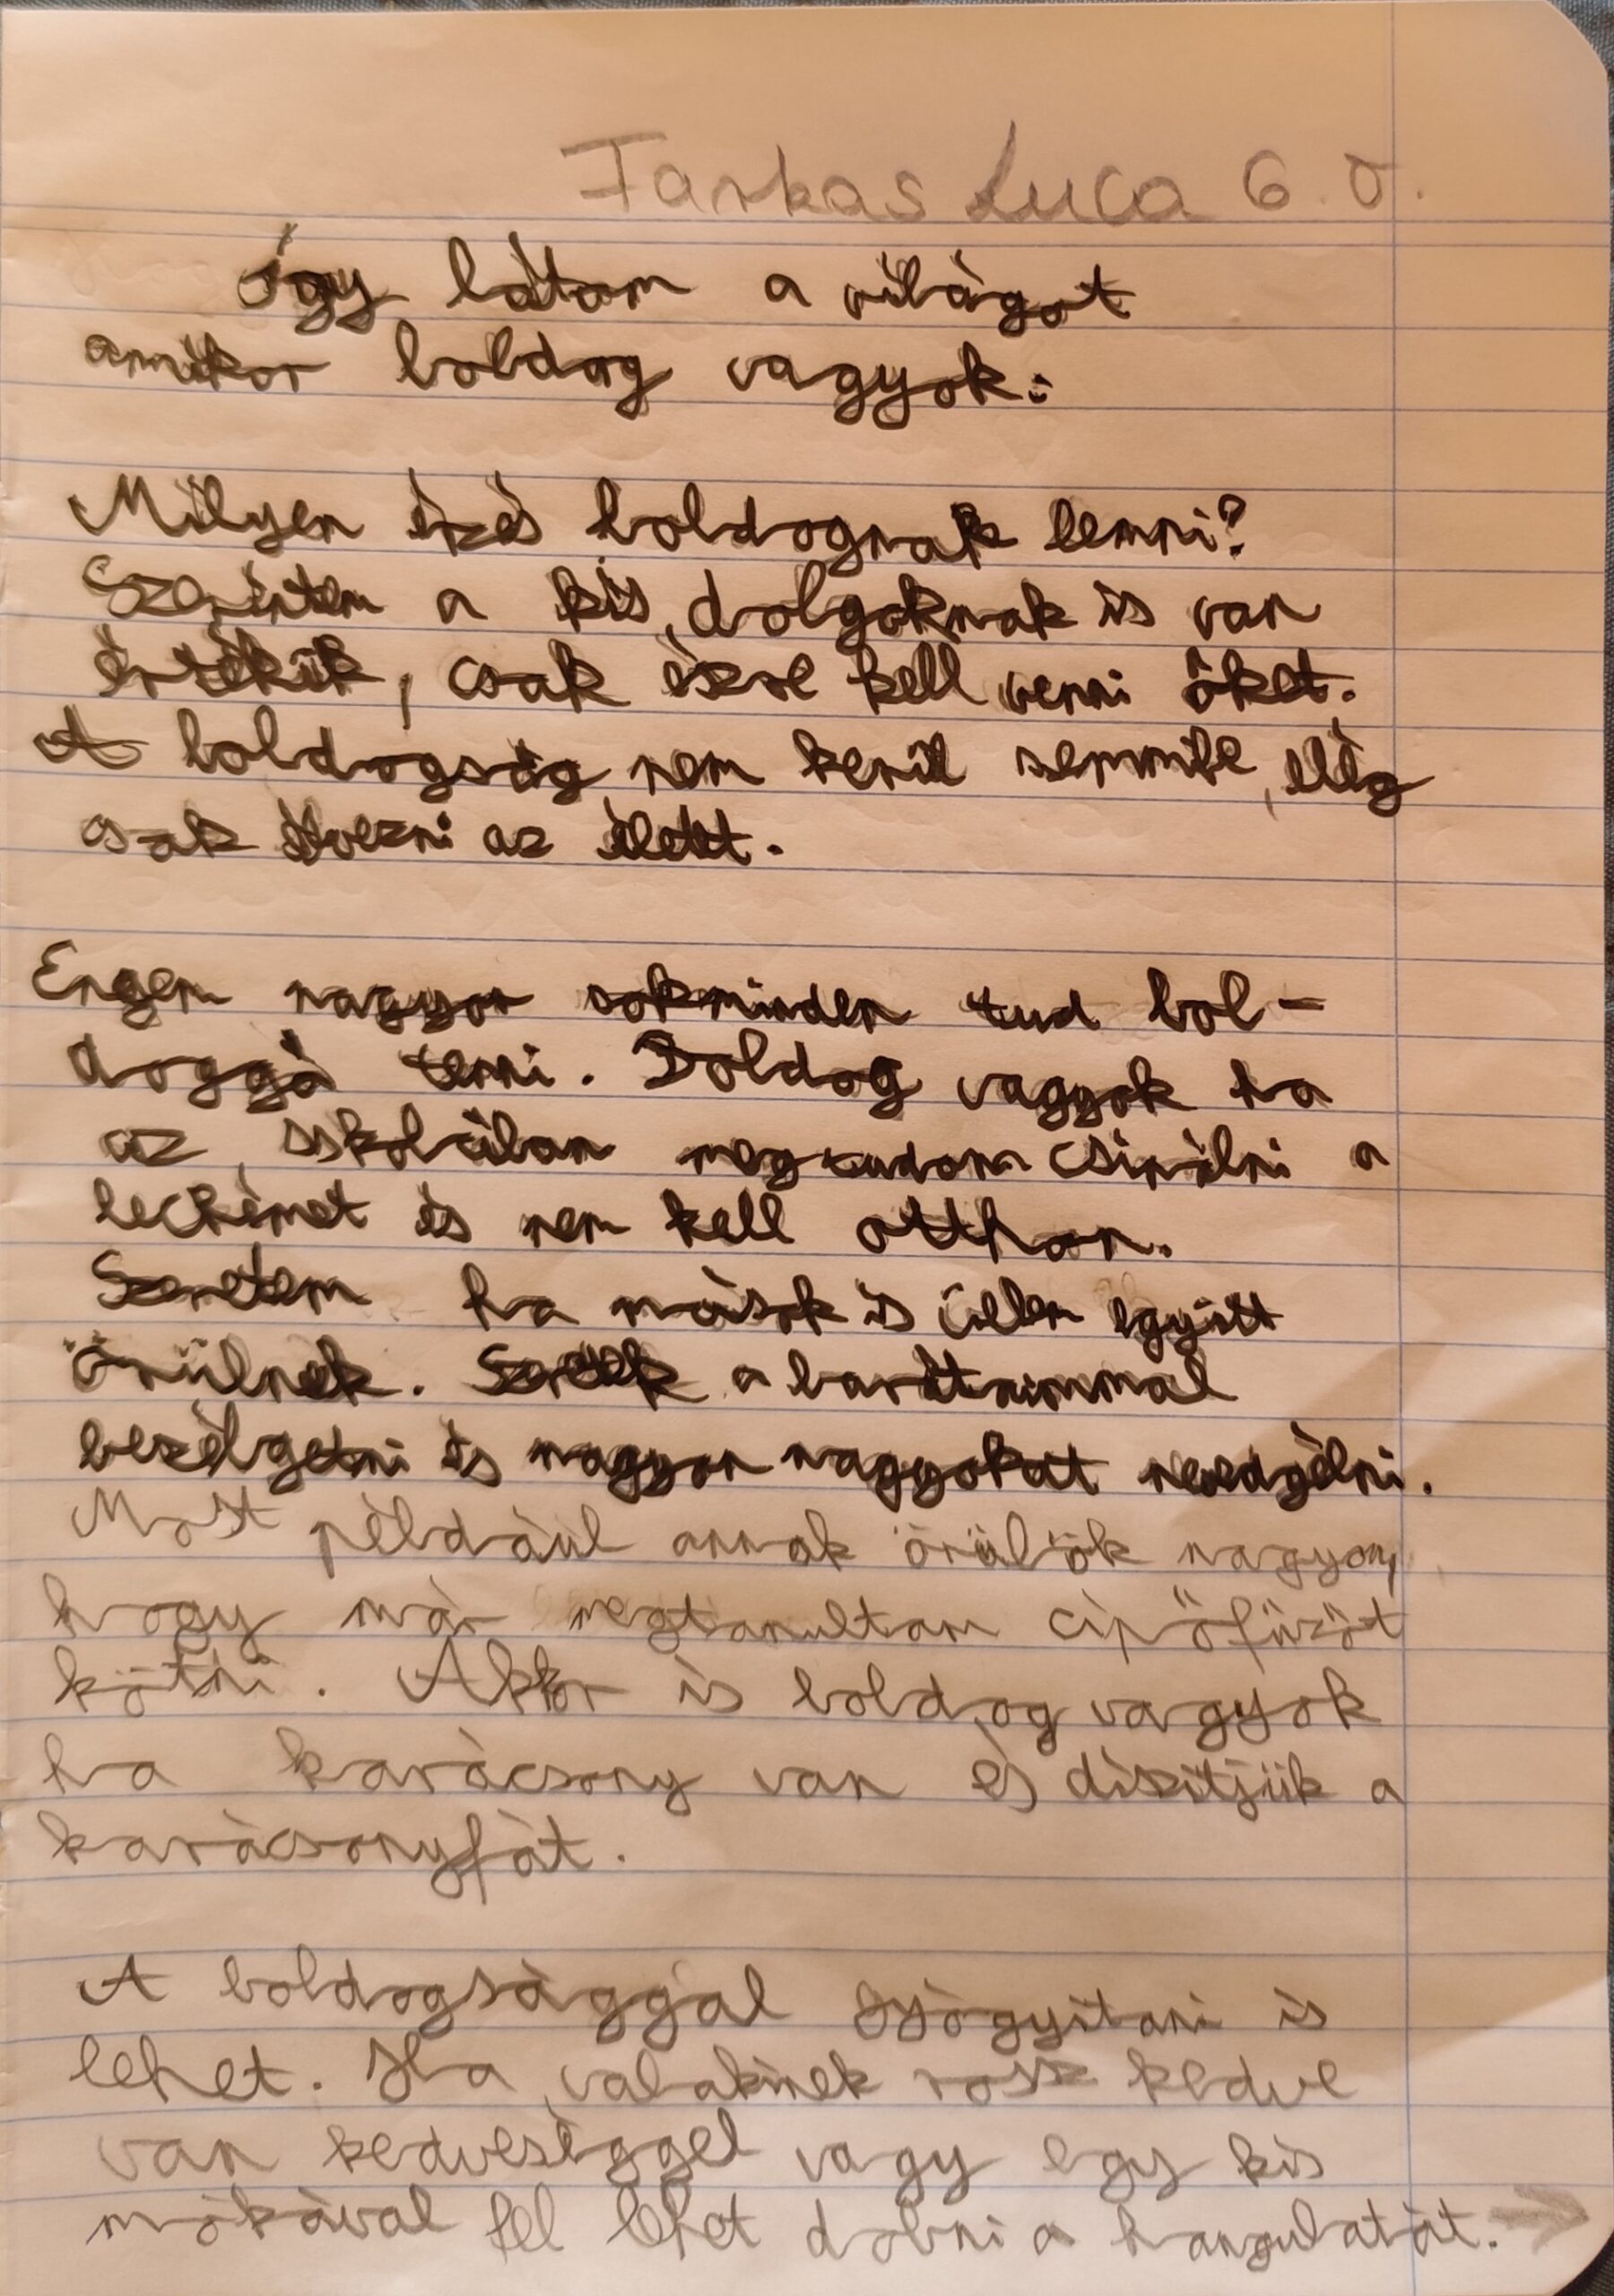 Farkas Luca 6. o.
Így látom a világot
amikor boldog vagyok:
Milyen érzés boldognak lenni?
Szerintem a kis dolgoknak is van
értékük, csak észre kell venni őket.
A boldogság nem kerül semmibe, elég
csak élvezni az életet.
Engem nagyon sokminden tud bol-
doggá tenni. Boldog vagyok ha
az iskolában meg tudom csinálni a
leckémet és nem kell otthon.
Szeretem ha mások is velem együtt
örülnek. Szeretek a barátnőimmel
beszélgetni és nagyon nagyokat nevedgélni.
Most például annak örülök nagyon,
hogy már megtanultam cipőfűzőt
kötni. Akkor is boldog vagyok
ha karácsony van és díszítjük a
karácsonyfát.
A boldogsággal gyógyítani is
lehet. Ha valakinek rossz kedve
van kedvességgel vagy egy kis
mókával fel lehet dobni a hangulatát. →